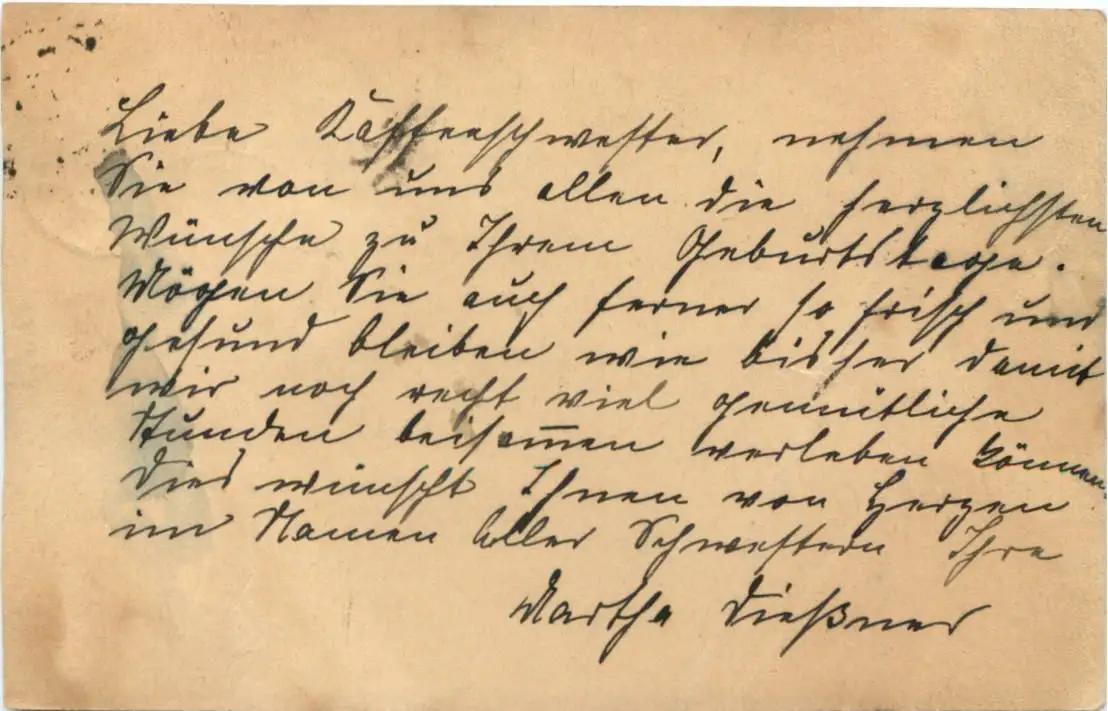 Liebe Kaffeeschwester, nehmen
Sie von uns allen die herzlichsten
Wünsche zu Ihrem Geburtstage.
Mögen Sie auch ferner so frisch und
gesund bleiben wie bisher damit
wir noch recht viel gemütliche
Stunden beisam̅en verleben können.
Dies wünscht Ihnen von Herzen
im Namen aller Schwestern Ihre
Martha Dießner